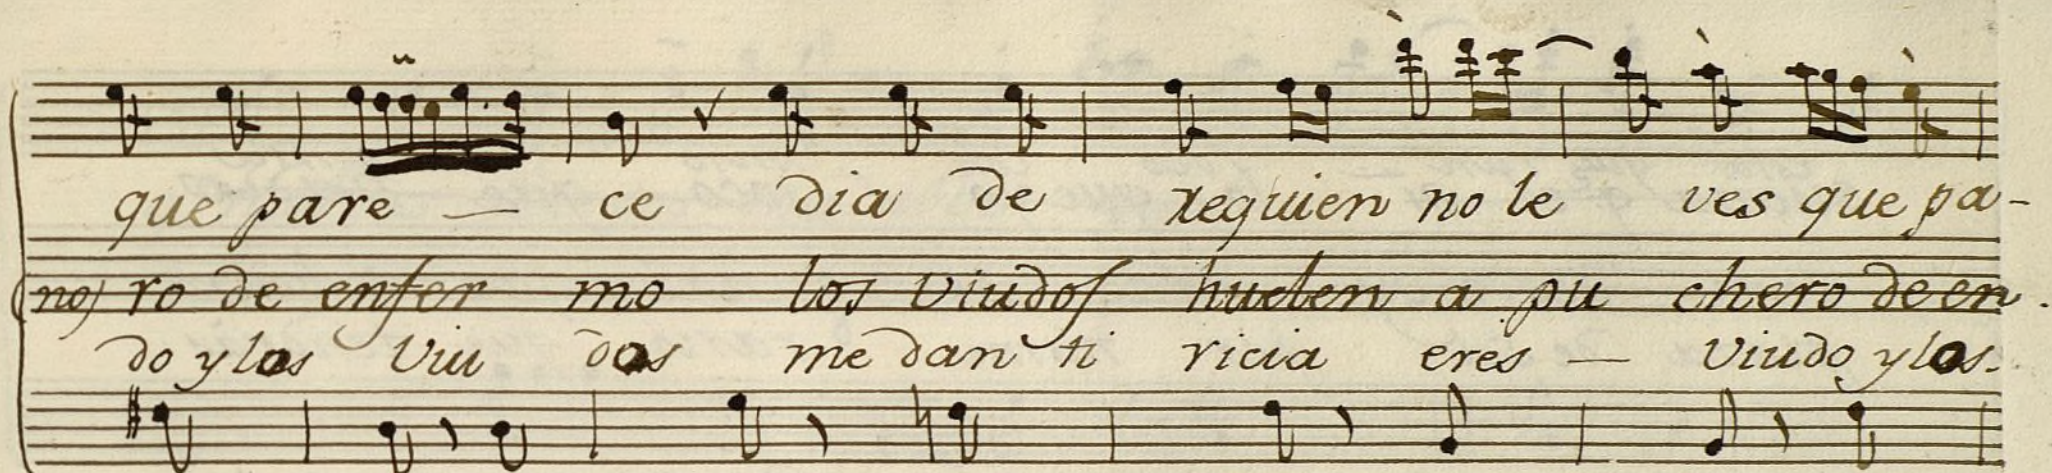 que pare — ce dia de requien no le ves que pa-
no) ro de enfer mo los viudos huelen a pu chero de en.
do y los viu dos me dan ti ricia eres — viudo y los.